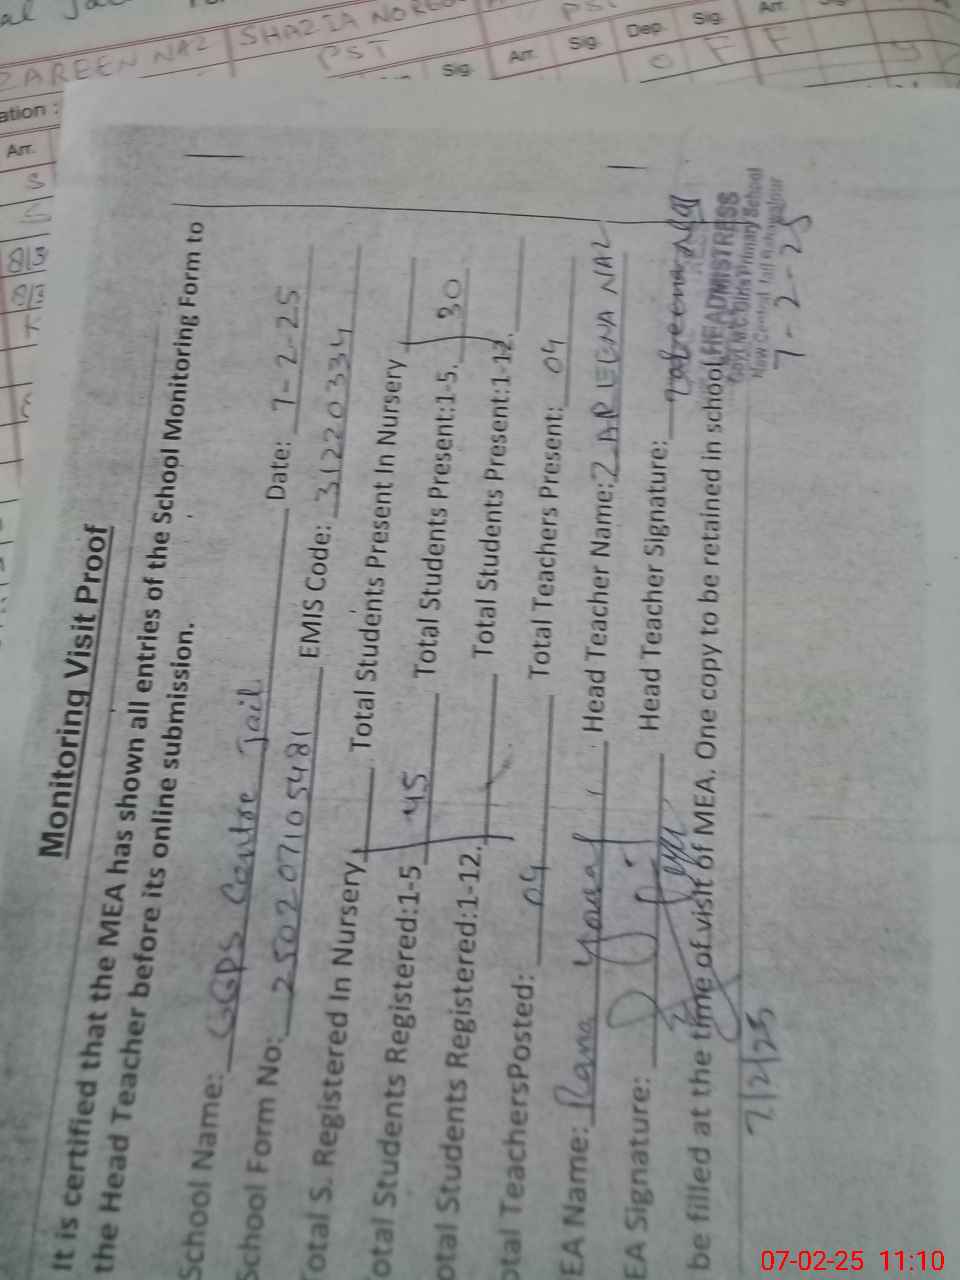 ZAREEN NAZ SHAZIA
PST
PST
Sig. Arr. Sig. Dep. Sig. Arr.
O F F
ation :
Arr.
Monitoring Visit Proof
It is certified that the MEA has shown all entries of the School Monitoring Form to
the Head Teacher before its online submission.
School Name: GGPS Centre Jail Date: 7-2-25
School Form No: 250207105481 EMIS Code: 31220334
Total S. Registered In Nursery Total Students Present In Nursery
otal Students Registered:1-5 45 Total Students Present:1-5. 30
otal Students Registered:1-12. Total Students Present:1-12.
otal TeachersPosted: 04 Total Teachers Present: 04
EA Name: Rana Yousaf Head Teacher Name: ZAREENA NAZ
EA Signature: Head Teacher Signature:
be filled at the time of visit of MEA. One copy to be retained in school
HEADMISTRESS
Govt. M.C Girls Primary School
New Central Jail Bahawalpur
7-2-25
7/2/25
07-02-25 11:10